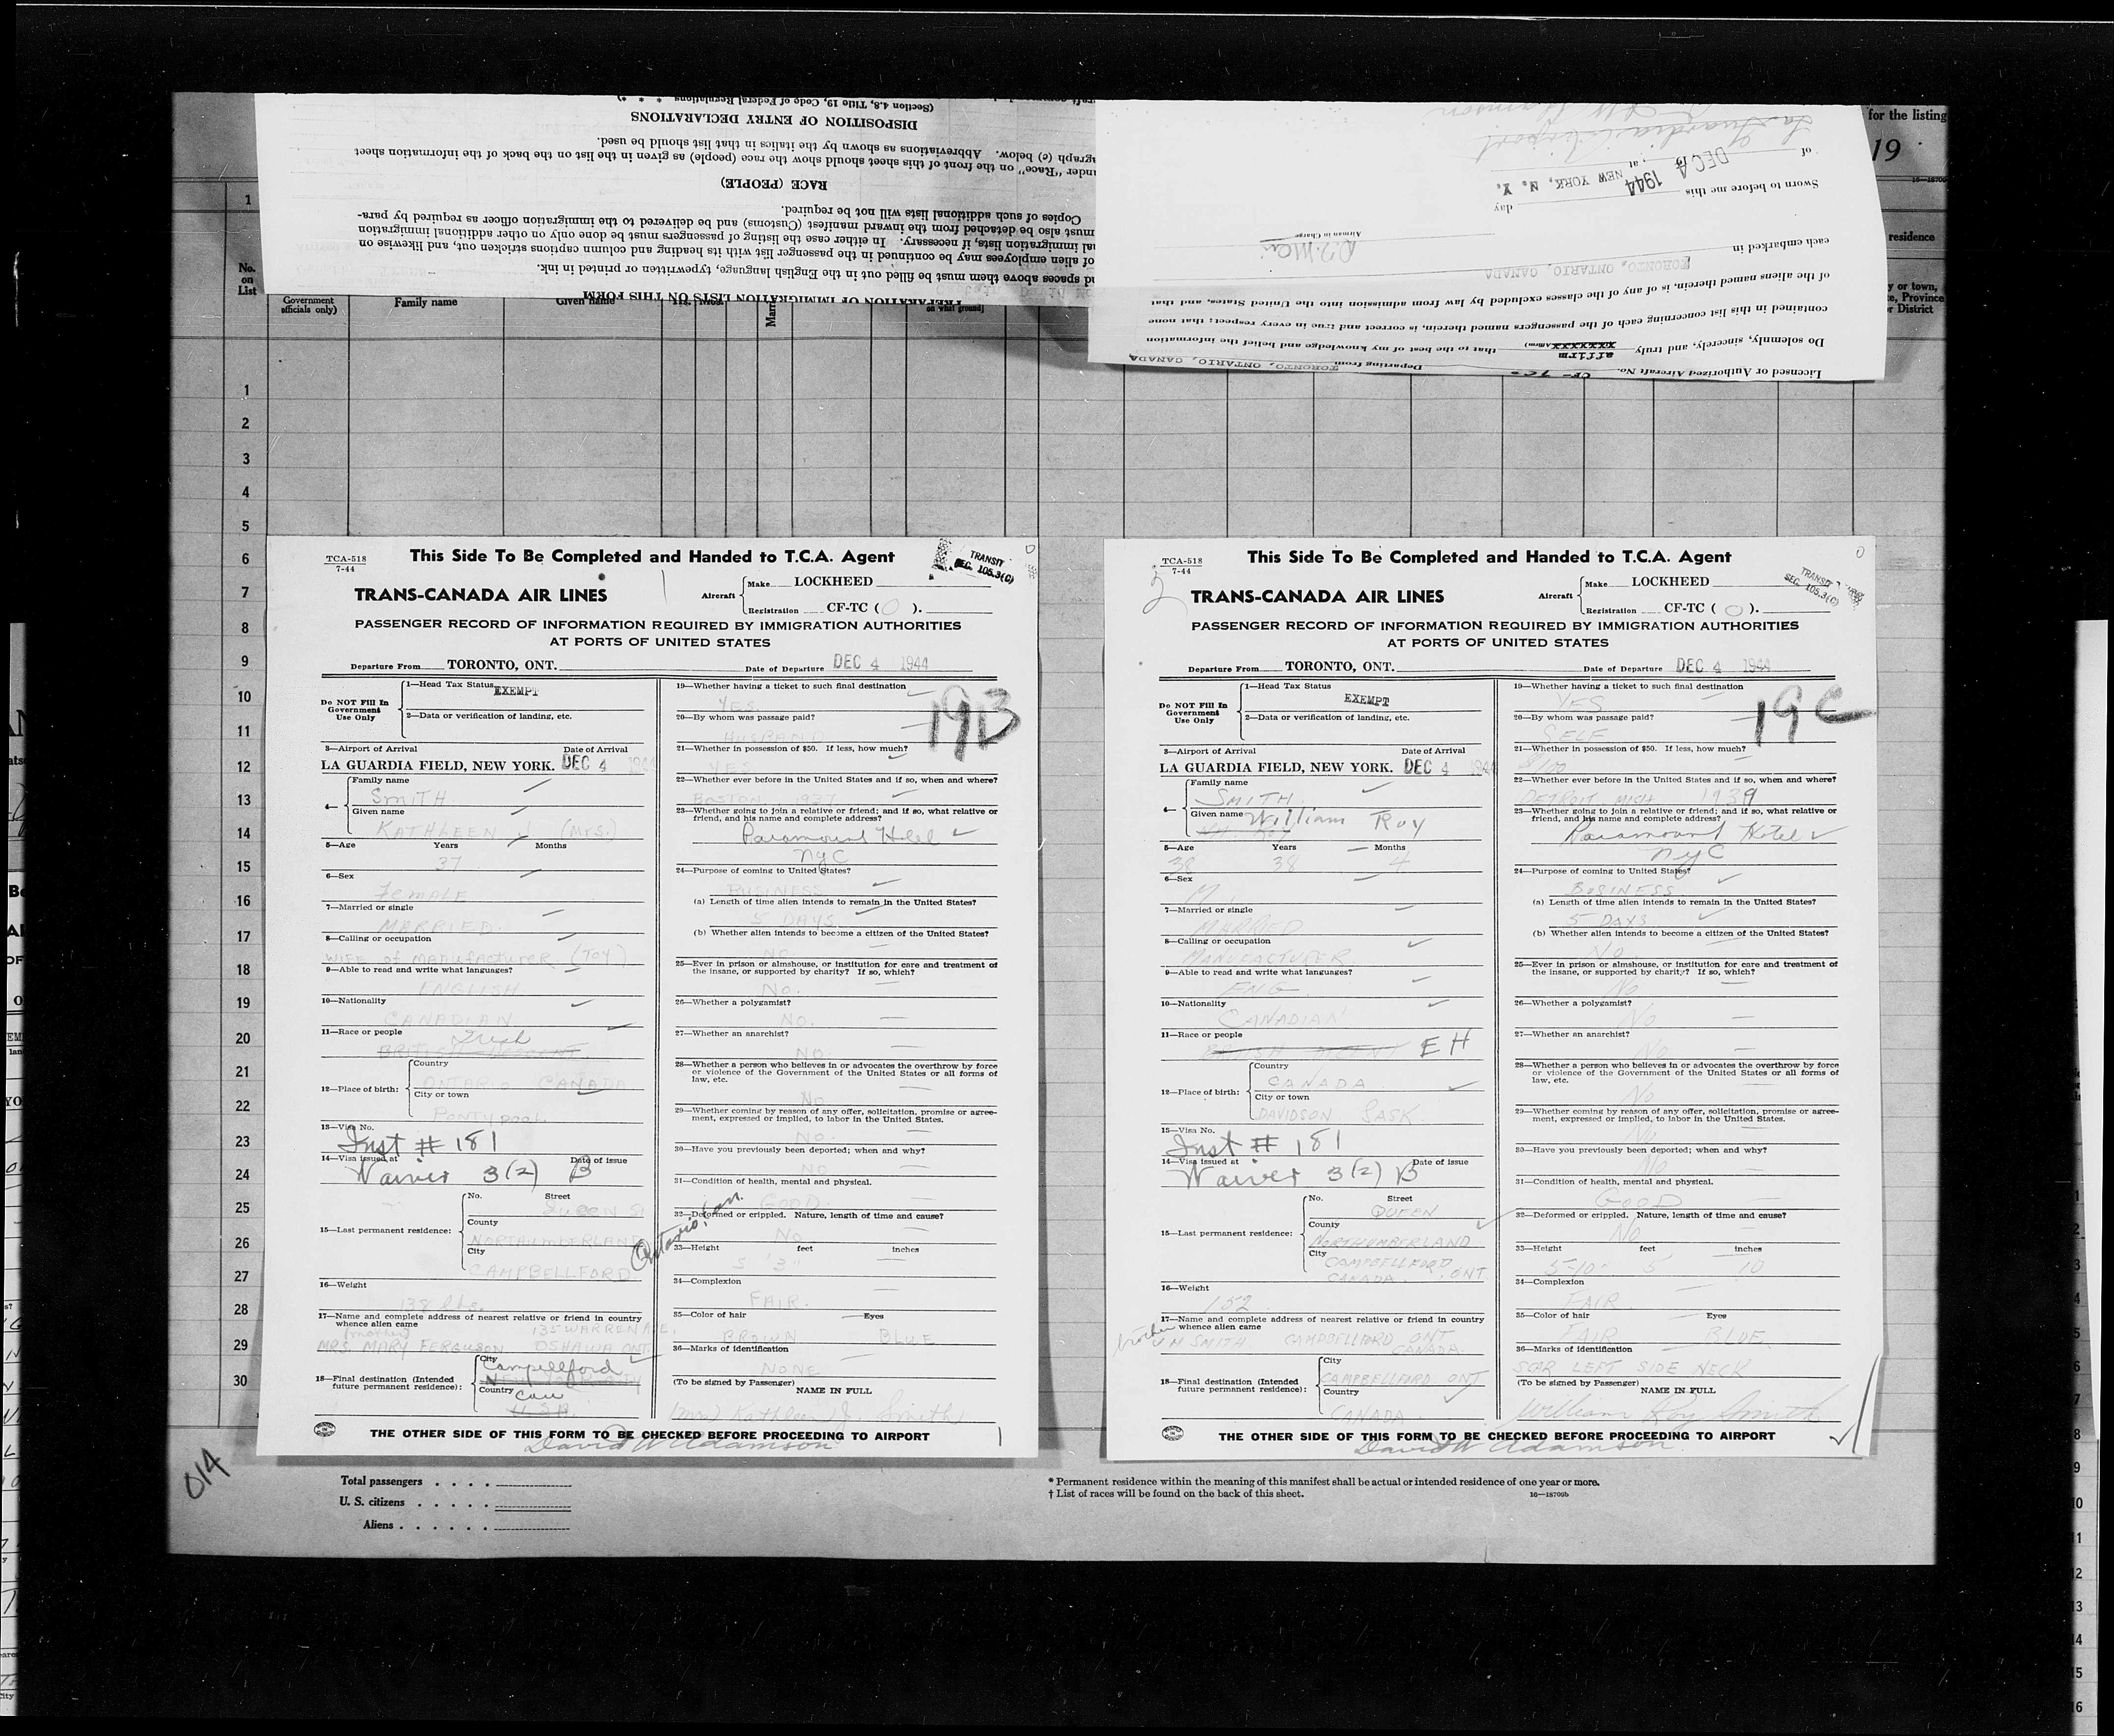 (Section 4.8, Title 19, Code of Federal Regulations * * *)
DISPOSITION OF ENTRY DECLARATIONS
agraph (c) below. Abbreviations as shown by the italics in that list should be used.
under "Race" on the front of this sheet should show the race (people) as given in the list on the back of the information sheet
RACE (PEOPLE)
Copies of such additional lists will not be required.
must also be detached from the inward manifest (Customs) and be delivered to the immigration officer as required by para-
al immigration lists, if necessary. In either case the listing of passengers must be done only on other additional immigration
of alien employees may be continued in the passenger list with its heading and column captions stricken out, and likewise on
nd spaces above them must be filled out in the English language, typewritten or printed in ink.
PREPARATION OF IMMIGRATION LISTS ON THIS FORM
La Guardia Airport
of
DEC 4 1944 at NEW YORK, N. Y.
Sworn to before me this day
Airman in Charge
each embarked in
TORONTO, ONTARIO, CANADA
of the aliens named therein, is of any of the classes excluded by law from admission into the United States, and that
contained in this list concerning each of the passengers named therein, is correct and true in every respect; that none
Do solemnly, sincerely, and truly affirm that to the best of my knowledge and belief the information
Licensed or Authorized Aircraft No. Departing from TORONTO, ONTARIO, CANADA
for the listing
19
16—18709
residence
y or town,
e, Province
r District
No.
on
List
Government
officials only)
Family name
Given name
on what ground)
1
1
2
3
4
5
6
7
8
9
10
11
12
13
14
15
16
17
18
19
20
21
22
23
24
25
26
27
28
29
30
TCA-518
7-44
This Side To Be Completed and Handed to T.C.A. Agent
TRANSIT
SEC. 105.3(C)
TRANS-CANADA AIR LINES
Aircraft
Make LOCKHEED
Registration CF-TC ( O ).
PASSENGER RECORD OF INFORMATION REQUIRED BY IMMIGRATION AUTHORITIES
AT PORTS OF UNITED STATES
Departure From TORONTO, ONT. Date of Departure DEC 4 1944
Do NOT Fill In
Government
Use Only
1—Head Tax Status EXEMPT
2—Data or verification of landing, etc.
3—Airport of Arrival Date of Arrival
LA GUARDIA FIELD, NEW YORK. DEC 4 1944
4— Family name
SMITH
Given name
KATHLEEN J (Mrs.)
5—Age Years Months
37
6—Sex
FEMALE
7—Married or single
MARRIED.
8—Calling or occupation
WIFE of MANUFACTURER (TOY)
9—Able to read and write what languages?
ENGLISH
10—Nationality
CANADIAN
11—Race or people
Irish
12—Place of birth:
Country
ONTARIO CANADA
City or town
Pontypool
13—Visa No.
Inst # 181
14—Visa issued at Date of issue
Waiver 3(2) B
15—Last permanent residence:
No. Street
QUEEN St
County
NORTHUMBERLAND
City
CAMPBELLFORD
Ontario, Can.
16—Weight
138 lbs.
17—Name and complete address of nearest relative or friend in country
whence alien came
(mother) 135 WARREN AVE,
MRS. MARY FERGUSON OSHAWA ONT
18—Final destination (Intended
future permanent residence):
City
Campellford
Country
Can
U.S.A.
19—Whether having a ticket to such final destination
YES
19B
20—By whom was passage paid?
HUSBAND
21—Whether in possession of $50. If less, how much?
YES
22—Whether ever before in the United States and if so, when and where?
BOSTON 1937
23—Whether going to join a relative or friend; and if so, what relative or
friend, and his name and complete address?
Paramount Hotel
NYC
24—Purpose of coming to United States?
BUSINESS
(a) Length of time alien intends to remain in the United States?
5 DAYS
(b) Whether alien intends to become a citizen of the United States?
NO
25—Ever in prison or almshouse, or institution for care and treatment of
the insane, or supported by charity? If so, which?
NO.
26—Whether a polygamist?
NO.
27—Whether an anarchist?
NO.
28—Whether a person who believes in or advocates the overthrow by force
or violence of the Government of the United States or all forms of
law, etc.
NO
29—Whether coming by reason of any offer, solicitation, promise or agree-
ment, expressed or implied, to labor in the United States.
NO.
30—Have you previously been deported; when and why?
NO
31—Condition of health, mental and physical.
GOOD.
32—Deformed or crippled. Nature, length of time and cause?
NO
33—Height feet inches
5 '3"
34—Complexion
FAIR.
35—Color of hair Eyes
BROWN BLUE
36—Marks of identification
NONE
(To be signed by Passenger)
NAME IN FULL
(Mrs) Kathleen J Smith
THE OTHER SIDE OF THIS FORM TO BE CHECKED BEFORE PROCEEDING TO AIRPORT
David W Adamson
TCA-518
7-44
2
This Side To Be Completed and Handed to T.C.A. Agent
TRANSIT
SEC. 105.3(C)
TRANS-CANADA AIR LINES
Aircraft
Make LOCKHEED
Registration CF-TC ( O ).
PASSENGER RECORD OF INFORMATION REQUIRED BY IMMIGRATION AUTHORITIES
AT PORTS OF UNITED STATES
Departure From TORONTO, ONT. Date of Departure DEC 4 1944
Do NOT Fill In
Government
Use Only
1—Head Tax Status
EXEMPT
2—Data or verification of landing, etc.
3—Airport of Arrival Date of Arrival
LA GUARDIA FIELD, NEW YORK. DEC 4 1944
4— Family name
SMITH
Given name William Roy
5—Age Years Months
38 38 4
6—Sex
M
7—Married or single
MARRIED
8—Calling or occupation
MANUFACTURER
9—Able to read and write what languages?
ENG
10—Nationality
CANADIAN
11—Race or people
EH
12—Place of birth:
Country
CANADA
City or town
DAVIDSON SASK.
13—Visa No.
Inst # 181
14—Visa issued at Date of issue
Waiver 3(2) B
15—Last permanent residence:
No. Street
QUEEN
County
NORTHUMBERLAND
City
CAMPBELLFORD
CANADA. ONT
16—Weight
152
17—Name and complete address of nearest relative or friend in country
whence alien came
brother
SMITH CAMPBELLFORD ONT
CANADA.
18—Final destination (Intended
future permanent residence):
City
CAMPBELLFORD. ONT
Country
CANADA
19—Whether having a ticket to such final destination
YES
19C
20—By whom was passage paid?
SELF
21—Whether in possession of $50. If less, how much?
$100
22—Whether ever before in the United States and if so, when and where?
DETROIT MICH 1939
23—Whether going to join a relative or friend; and if so, what relative or
friend, and his name and complete address?
Paramount Hotel
NYC
24—Purpose of coming to United States?
BUSINESS
(a) Length of time alien intends to remain in the United States?
5 DAYS
(b) Whether alien intends to become a citizen of the United States?
NO
25—Ever in prison or almshouse, or institution for care and treatment of
the insane, or supported by charity? If so, which?
NO
26—Whether a polygamist?
NO
27—Whether an anarchist?
NO
28—Whether a person who believes in or advocates the overthrow by force
or violence of the Government of the United States or all forms of
law, etc.
NO
29—Whether coming by reason of any offer, solicitation, promise or agree-
ment, expressed or implied, to labor in the United States.
NO
30—Have you previously been deported; when and why?
NO
31—Condition of health, mental and physical.
GOOD
32—Deformed or crippled. Nature, length of time and cause?
NO
33—Height feet inches
5-10" 5 10
34—Complexion
FAIR
35—Color of hair Eyes
FAIR BLUE
36—Marks of identification
SCAR LEFT SIDE NECK
(To be signed by Passenger)
NAME IN FULL
William Roy Smith
THE OTHER SIDE OF THIS FORM TO BE CHECKED BEFORE PROCEEDING TO AIRPORT
David W Adamson
014
Total passengers . . . .
U. S. citizens . . . . .
Aliens . . . . . .
* Permanent residence within the meaning of this manifest shall be actual or intended residence of one year or more.
† List of races will be found on the back of this sheet.
16—18709b